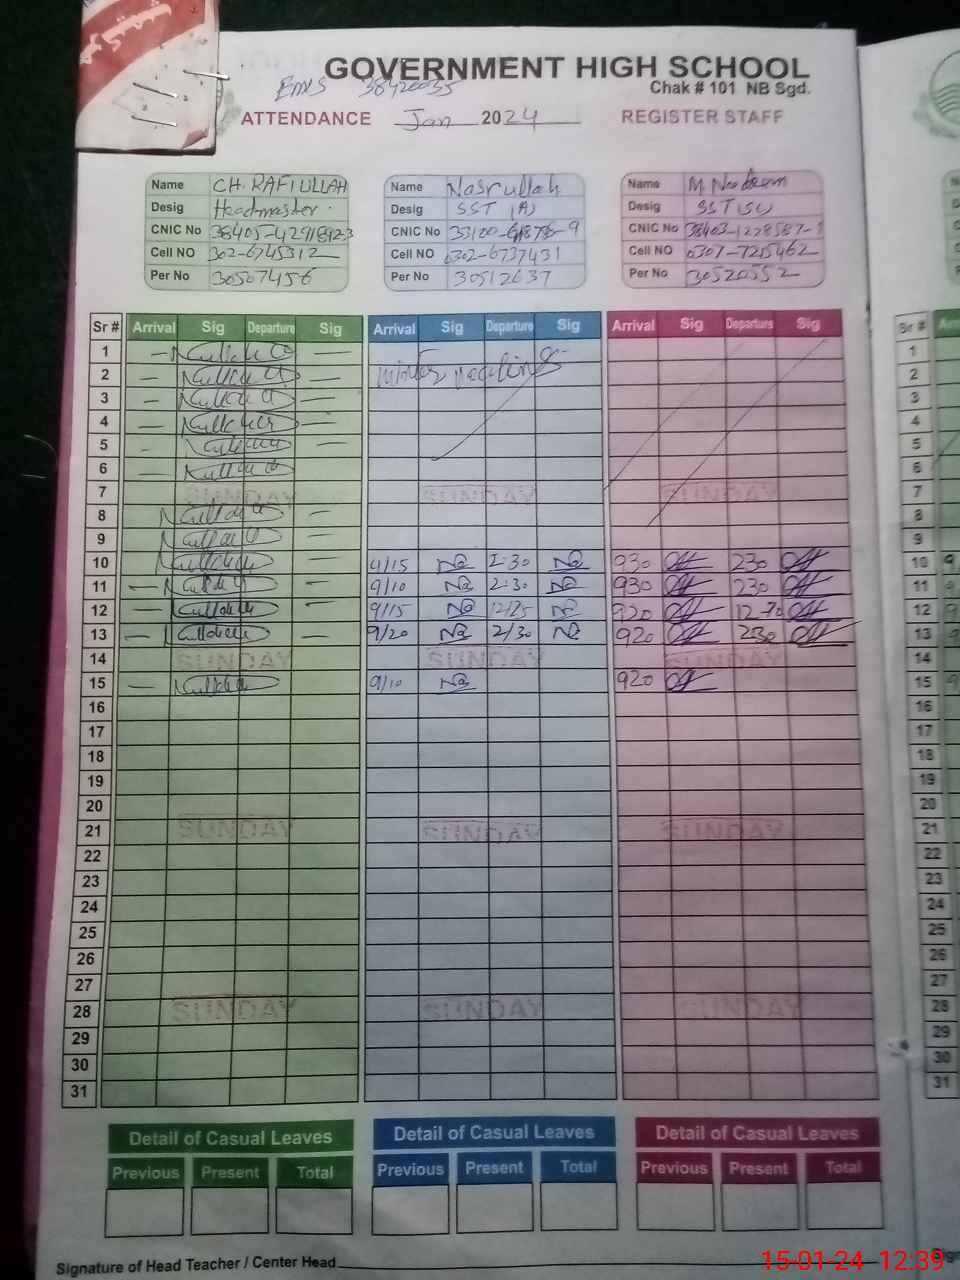 GOVERNMENT HIGH SCHOOL
EMIS 38420035
Chak # 101 NB Sgd.
ATTENDANCE Jan 2024 REGISTER STAFF
Name CH. RAFIULLAH Name Nasrullah Name M. Nadeem
Desig Headmaster Desig SST (A) Desig SST (SC)
CNIC No CNIC No CNIC No
Cell NO 302-6745312 Cell NO 0302-6737431 Cell NO 0307-7215462
Per No 30507456 Per No 30512637 Per No 30520552
Sr # Arrival Sig Departure Sig Arrival Sig Departure Sig Arrival Sig Departure Sig Sr #
1 — — 1
2 — — winter vacations 2
3 — — 3
4 — — 4
5 — — 5
6 — 6
7 SUNDAY SUNDAY SUNDAY 7
8 — 8
9 — 9
10 9/15 Na 2:30 Na 930 230 10
11 — — 9/10 Na 2:30 Na 930 230 11
12 — — 9/15 Na 12/25 Na 920 12
13 — — 9/20 Na 2/30 Na 920 230 13
14 SUNDAY SUNDAY SUNDAY 14
15 — 9/10 Na 920 15
16 16
17 17
18 18
19 19
20 20
21 SUNDAY SUNDAY SUNDAY 21
22 22
23 23
24 24
25 25
26 26
27 27
28 SUNDAY SUNDAY SUNDAY 28
29 29
30 30
31 31
Detail of Casual Leaves Detail of Casual Leaves Detail of Casual Leaves
Previous Present Total Previous Present Total Previous Present Total
Signature of Head Teacher / Center Head
15-01-24 12:39